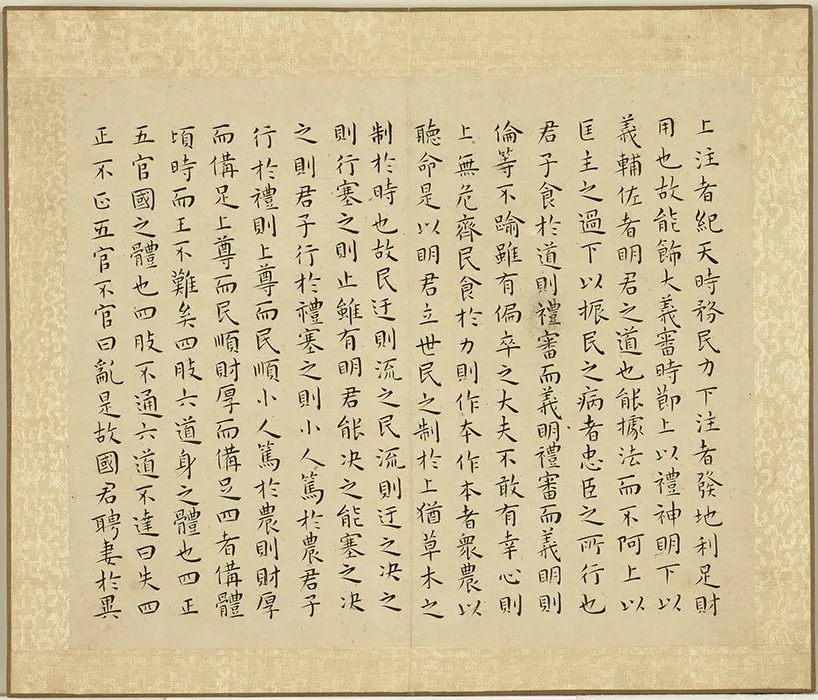 上注者紀天時務民力下注者發地利足財
用也故能飾大義審時節上以禮神明下以
義輔佐者明君之道也能據法而不阿上以
匡主之過下以振民之病者忠臣之所行也
君子食於道則禮審而義明禮審而義明則
倫等不踰雖有偏卒之大夫不敢有幸心則
上無危齊民食於力則作本作本者衆農以
聽命是以明君立世民之制於上猶草木之
制於時也故民迂則流之民流則迂之决之
則行塞之則止雖有明君能决之能塞之决
之則君子行於禮塞之則小人篤於農君子
行於禮則上尊而民順小人篤於農則財厚
而備足上尊而民順財厚而備足四者備體
頃時而王不難矣四肢六道身之體也四正
五官國之體也四肢不通六道不達曰失四
正不正五官不官曰亂是故國君聘妻於異